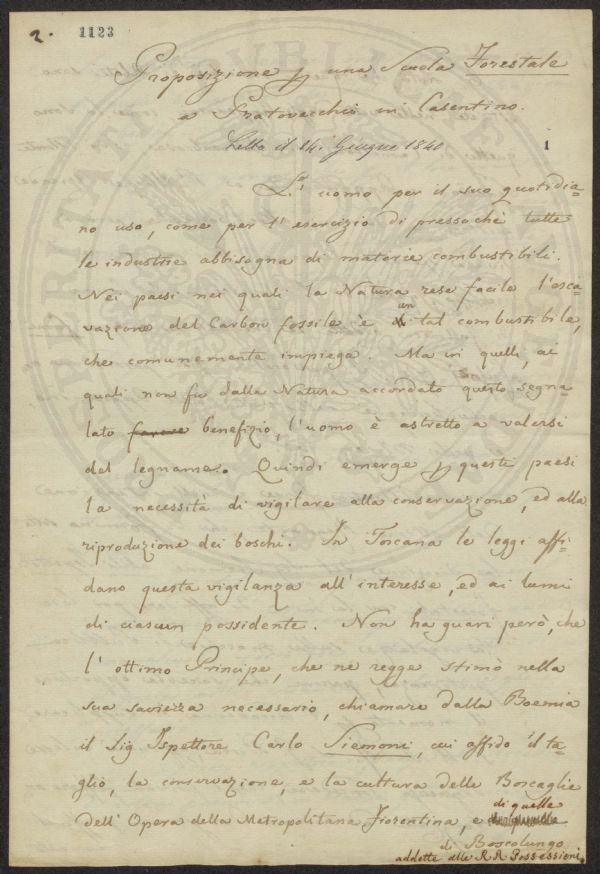 2.
1123
Proposizione p una Scuola Forestale
a Pratovecchio in Casentino.
Letta il 14. Giugno 1840
1
L'uomo per il suo quotidia-
no uso, come per l'esercizio di pressochè tutte
le industrie abbisogna di materie combustibili.
Nei paesi nei quali la Natura rese facile l'esca-
vazione del Carbon fossile è un tal combustibile,
che comunemente impiega. Ma in quelli, ai
quali non fu dalla Natura accordato questo segna-
lato favore benefizio, l'uomo è astretto a valersi
del legname. Quindi emerge p questi paesi
la necessità di vigilare alla conservazione, ed alla
riproduzione dei boschi. In Toscana le leggi affi-
dano questa vigilanza all'interesse, ed ai lumi
di ciascun possidente. Non ha guari però, che
l'ottimo Principe, che ne regge stimò nella
sua saviezza necessario, chiamare dalla Boemia
il Sig Ispettore Carlo Siemoni, cui affidò il ta-
glio, la conservazione, e la cultura delle Boscaglie
dell'Opera della Metropolitana Fiorentina, e di quelle
di Boscolungo
addette alle R R Possessioni.